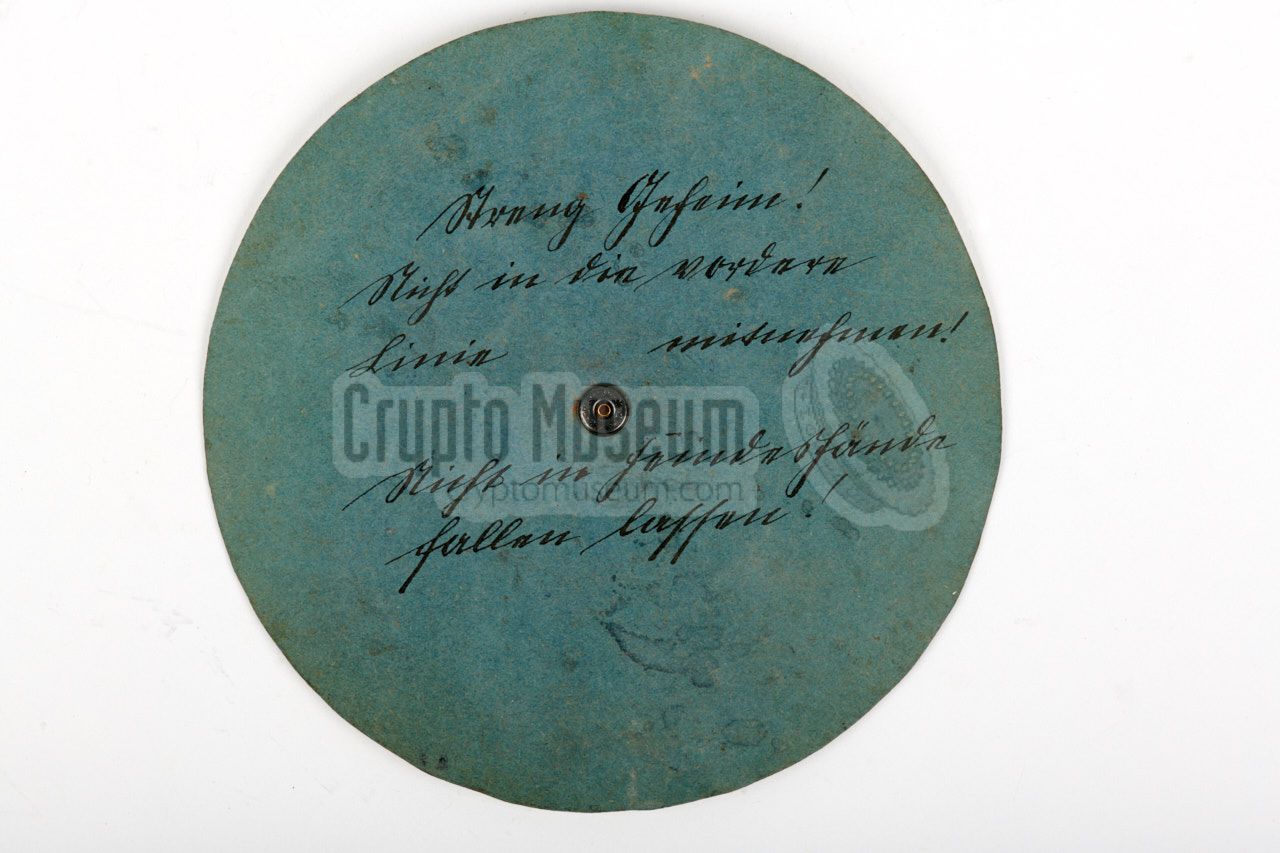 Streng Geheim!
Nicht in die vordere
Linie mitnehmen!
Crypto Museum
Nicht in Feindeshände
cryptomuseum.com
fallen lassen!